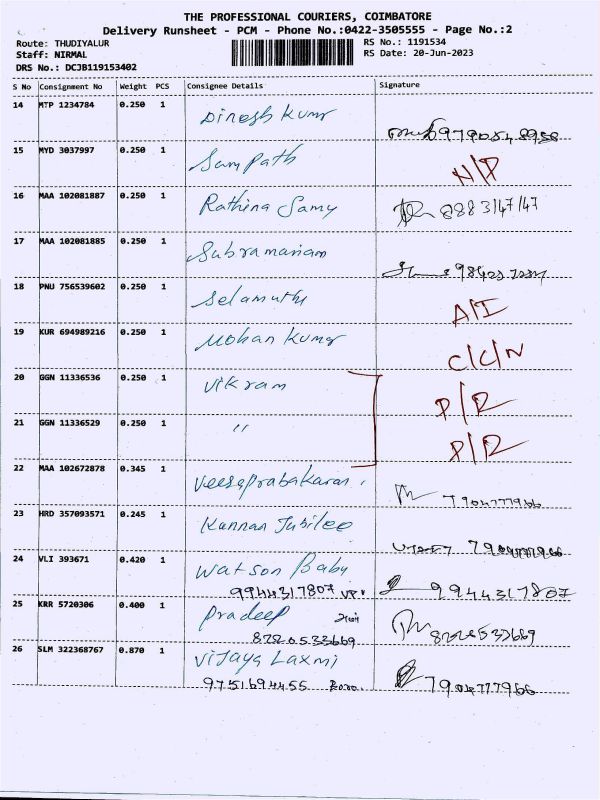 THE PROFESSIONAL COURIERS, COIMBATORE
Delivery Runsheet - PCM - Phone No.:0422-3505555 - Page No.:2
Route: THUDIYALUR
Staff: NIRMAL
DRS No.: DCJB119153402
RS No.: 1191534
RS Date: 20-Jun-2023
S No Consignment No Weight PCS Consignee Details Signature
14 MTP 1234784 0.250 1 Dinesh Kumr
15 MYD 3037997 0.250 1 Sampath N/P
16 MAA 102081887 0.250 1 Rathina Samy 8883147147
17 MAA 102081885 0.250 1 Subramaniam
18 PNU 756539602 0.250 1 Selamuthu A/I
19 KUR 694989216 0.250 1 Mohan Kumar C/C/N
20 GGN 11336536 0.250 1 Vikram P/R
21 GGN 11336529 0.250 1 " P/R
22 MAA 102672878 0.345 1 Veeraprabakaran 7904777966
23 HRD 357093571 0.245 1 Kannan Jubilee 7904777966
24 VLI 393671 0.420 1 Watson Baby 9944317807
9944317807
25 KRR 5720306 0.400 1 Pradeep
8220533669
26 SLM 322368767 0.870 1 Vijaya Laxmi 7904777966
9751694455